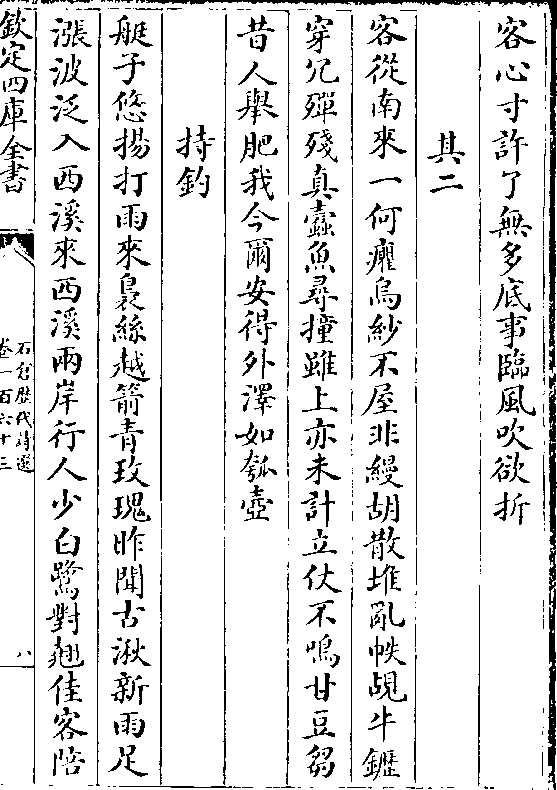 客心寸許了無多底事臨風吹欲折
其二
客從南來一何癯烏紗不屋非縵胡散堆亂帙覘牛鑣
穿冗殫殘真蠧魚尋撞雖上亦未計立仗不鳴甘豆芻
昔人舉肥我今爾安得外澤如瓠壺
持釣
艇子悠揚打雨來裊絲越箭青玫瑰昨聞古湫新雨足
漲波泛入西溪來西溪兩岸行人少白鷺對翹佳客陪
欽定四庫全書
石倉歷代詩選
卷一百六十三
八